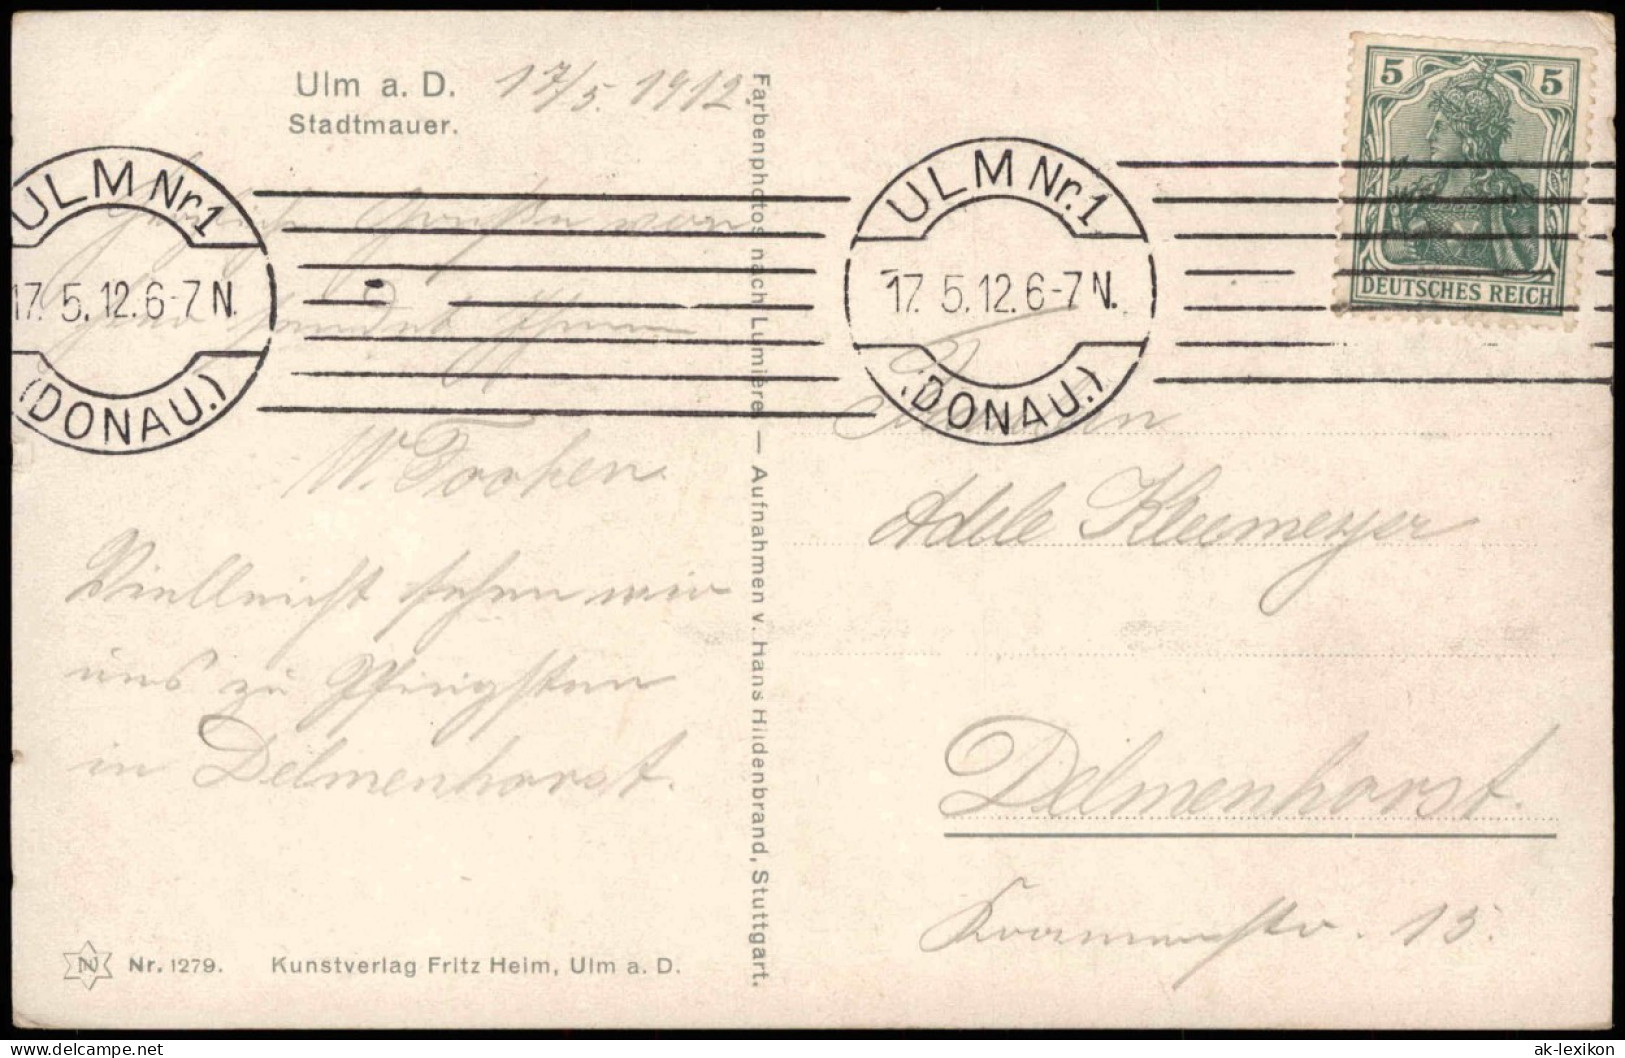 Ulm a. D.
Stadtmauer.
17/5. 1912
ULM Nr. 1
17. 5. 12. 6-7 N.
(DONAU.)
Herzliche Grüße von
hier sendet Ihnen
W. Tooken
Vielleicht sehen wir
uns zu Pfingsten
in Delmenhorst.
Nr. 1279.
Kunstverlag Fritz Heim, Ulm a. D.
Farbenphotos nach Lumière. — Aufnahmen v. Hans Hildenbrand, Stuttgart.
ULM Nr. 1
17. 5. 12. 6-7 N.
(DONAU.)
5 5
DEUTSCHES REICH
Fräulein
Adele
Delmenhorst.
15.
ak-lexikon
www.delcampe.net